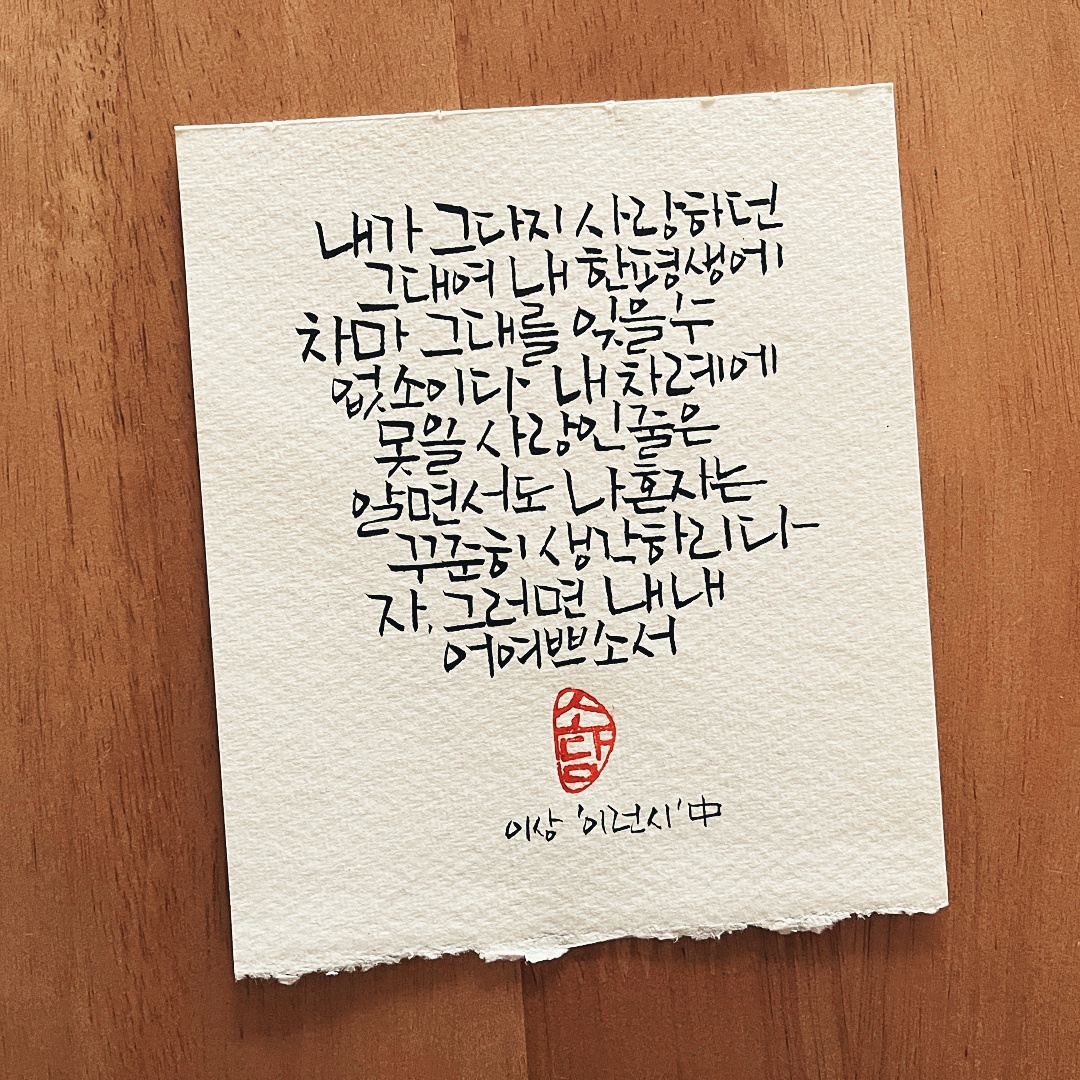 내가 그다지 사랑하던
그대여 내 한평생에
차마 그대를 잊을 수
없소이다 내 차례에
못 올 사랑인 줄은
알면서도 나 혼자는
꾸준히 생각하리다
자, 그러면 내내
어여쁘소서
소담
이상 '이런시' 中